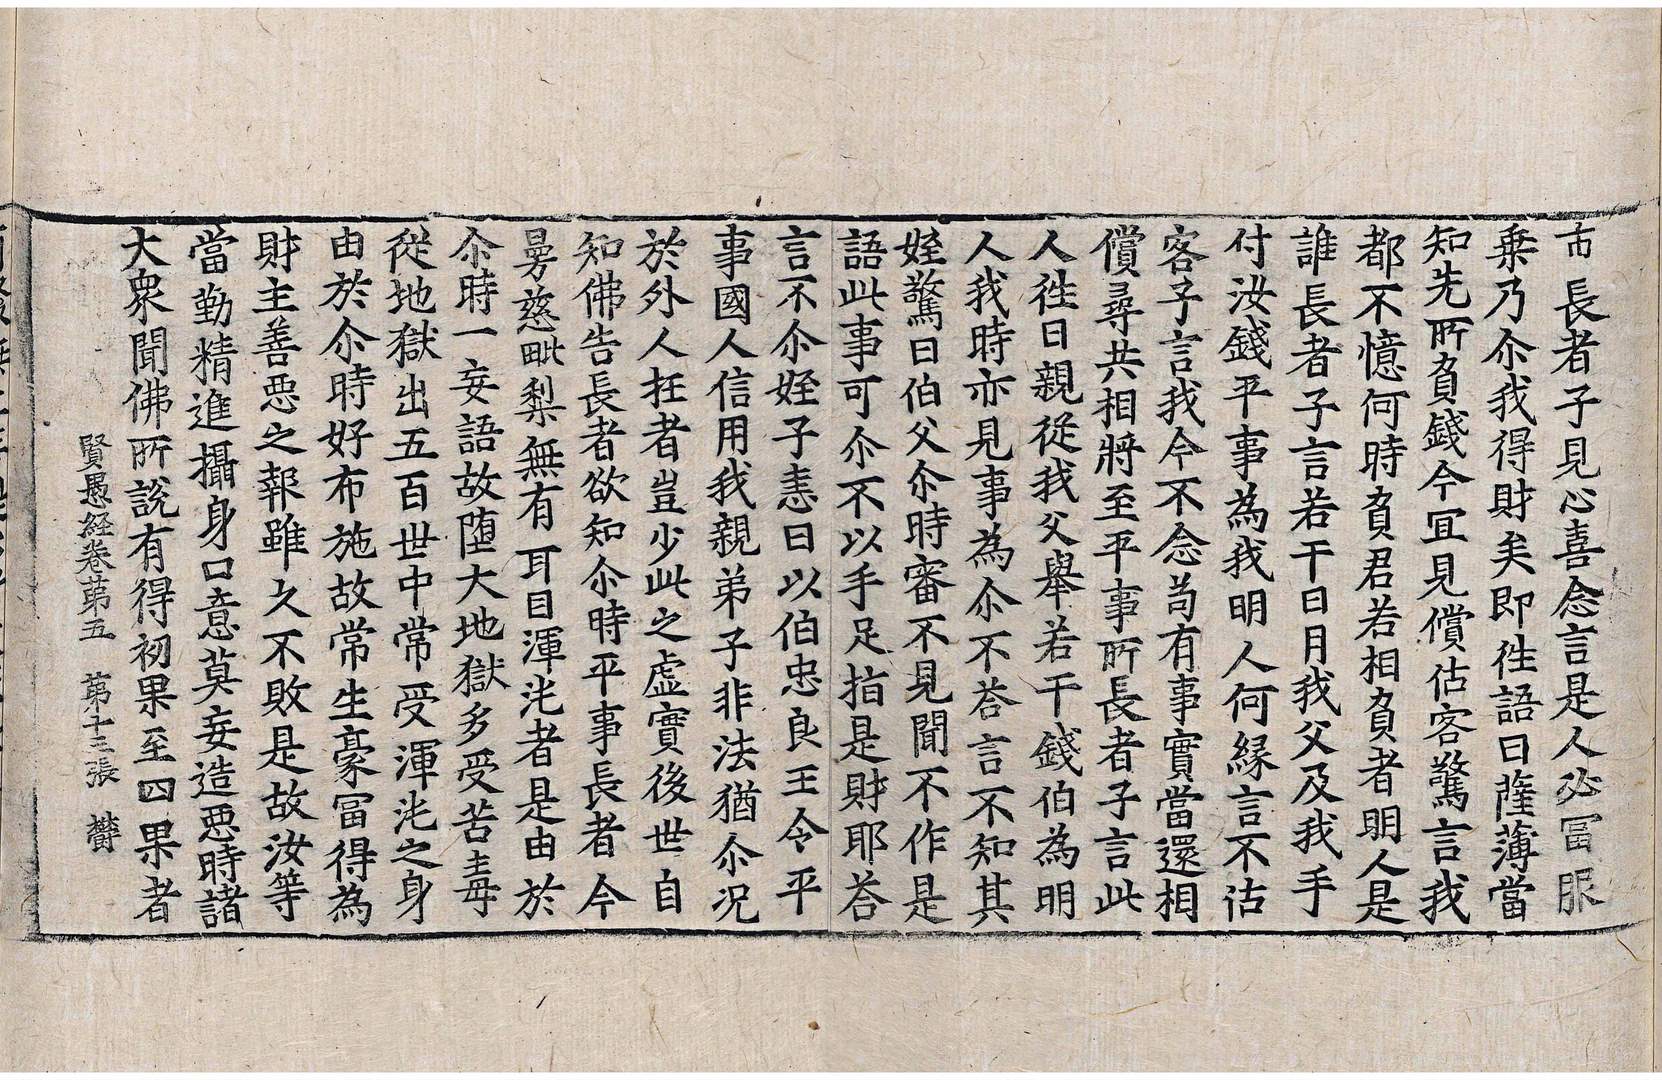 市長者子見心喜念言是人必冨服
乗乃尒我得財矣即徃語曰薩薄當
知先所負錢今冝見償估客驚言我
都不憶何時負君若相負者明人是
誰長者子言若干日月我父及我手
付汝錢平事為我明人何縁言不估
客子言我今不念苟有事實當還相
償尋共相將至平事所長者子言此
人徃日親從我父舉若干錢伯為明
人我時亦見事為尒不荅言不知其
姪驚曰伯父尒時審不見聞不作是
語此事可尒不以手足指是財耶荅
言不尒姪子恚曰以伯忠良王令平
事國人信用我親弟子非法猶尒况
於外人抂者豈少此之虛實後世自
知佛告長者欲知尒時平事長者今
曼慈毗梨無有耳目渾沌者是由於
尒時一妄語故堕大地獄多受苦毒
從地獄出五百世中常受渾沌之身
由於尒時好布施故常生豪冨得為
財主善惡之報雖久不敗是故汝等
當勤精進攝身口意莫妄造惡時諸
大衆聞佛所說有得初果至四果者
賢愚経卷苐五　苐十三張　欝